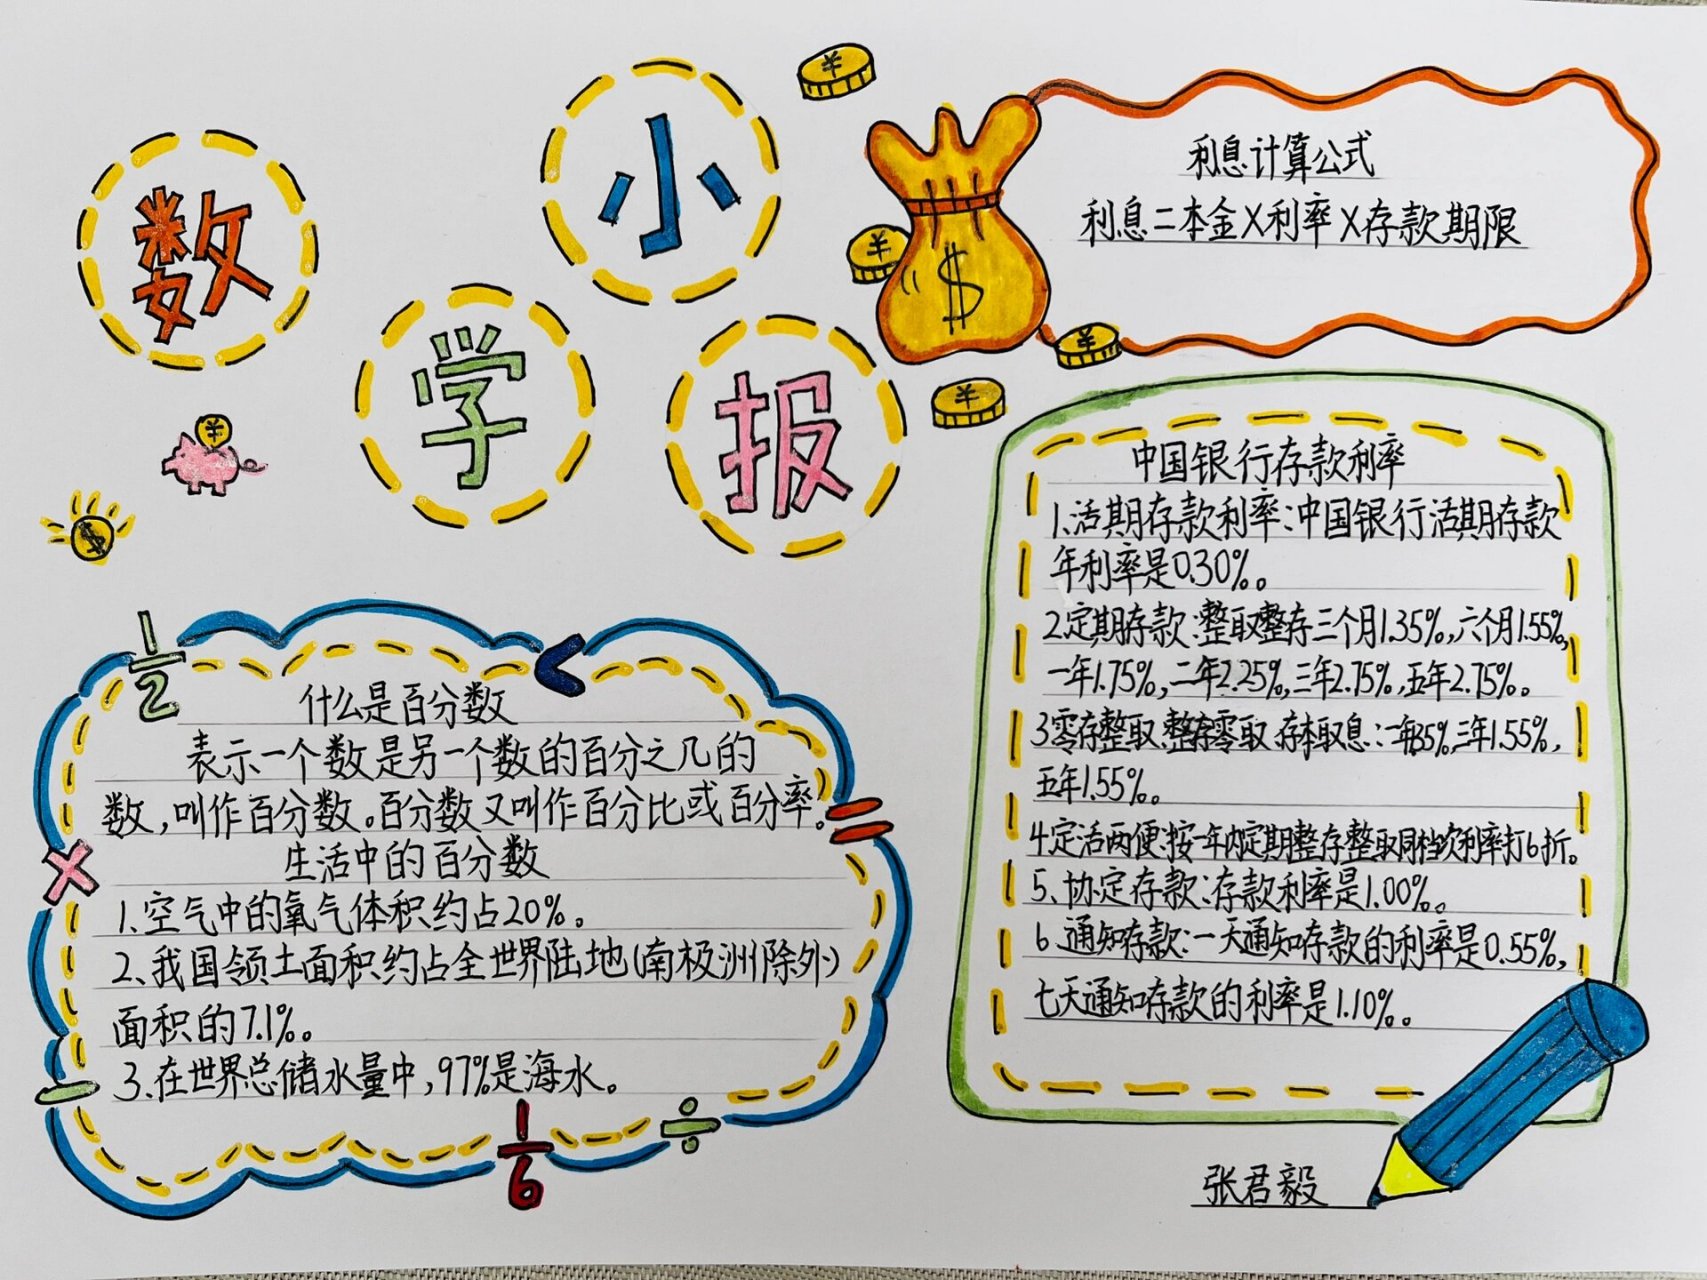 数学小报
利息计算公式
利息=本金×利率×存款期限
中国银行存款利率
1.活期存款利率:中国银行活期存款
年利率是0.30%。
2.定期存款:整取整存三个月1.35%,六个月1.55%,
一年1.75%,二年2.25%,三年2.75%,五年2.75%。
3零存整取、整存零取、存本取息:一年35%,三年1.55%,
五年1.55%。
4定活两便:按一年内定期整存整取同档次利率打6折。
5、协定存款:存款利率是1.00%。
6、通知存款:一天通知存款的利率是0.55%,
七天通知存款的利率是1.10%。
什么是百分数
表示一个数是另一个数的百分之几的
数,叫作百分数。百分数又叫作百分比或百分率。
生活中的百分数
1.空气中的氧气体积约占20%。
2、我国领土面积约占全世界陆地(南极洲除外)
面积的7.1%。
3.在世界总储水量中,97%是海水。
张君毅
1/2
<
=
×
-
1/6
÷
¥
¥
¥
¥
¥
$
$